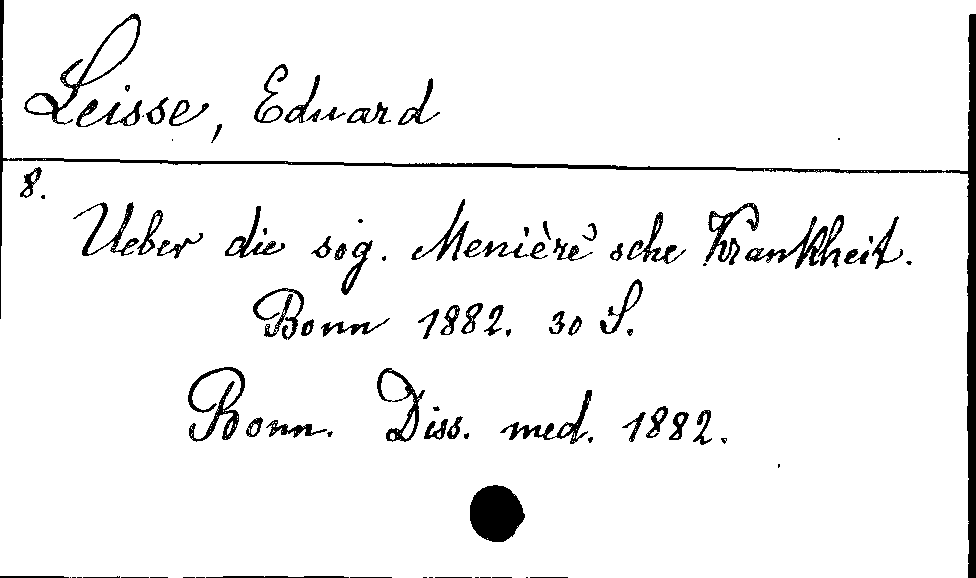 Leisse, Eduard
8.
Ueber die sog. Menière'sche Krankheit.
Bonn 1882. 30 S.
Bonn. Diss. med. 1882.